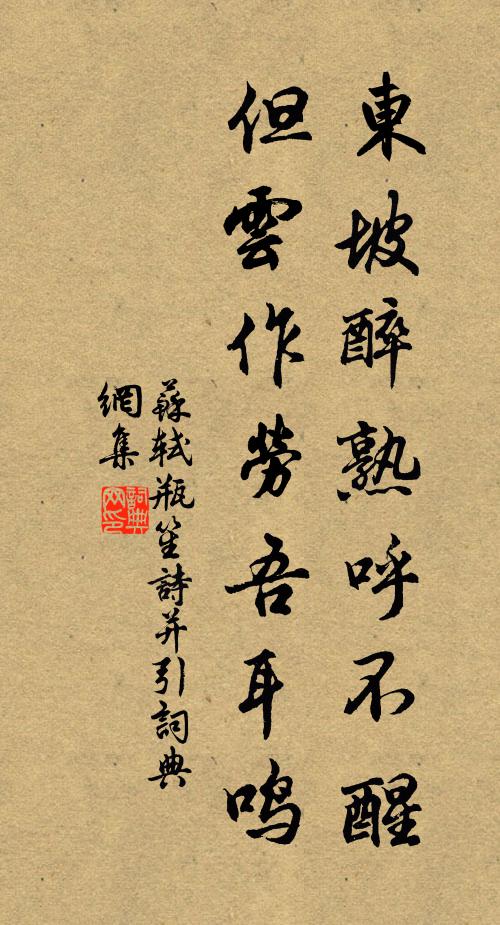 東坡醉熟呼不醒
但雲作勞吾耳鳴
蘇軾瓶笙詩并引詞典
網集
詞典网印